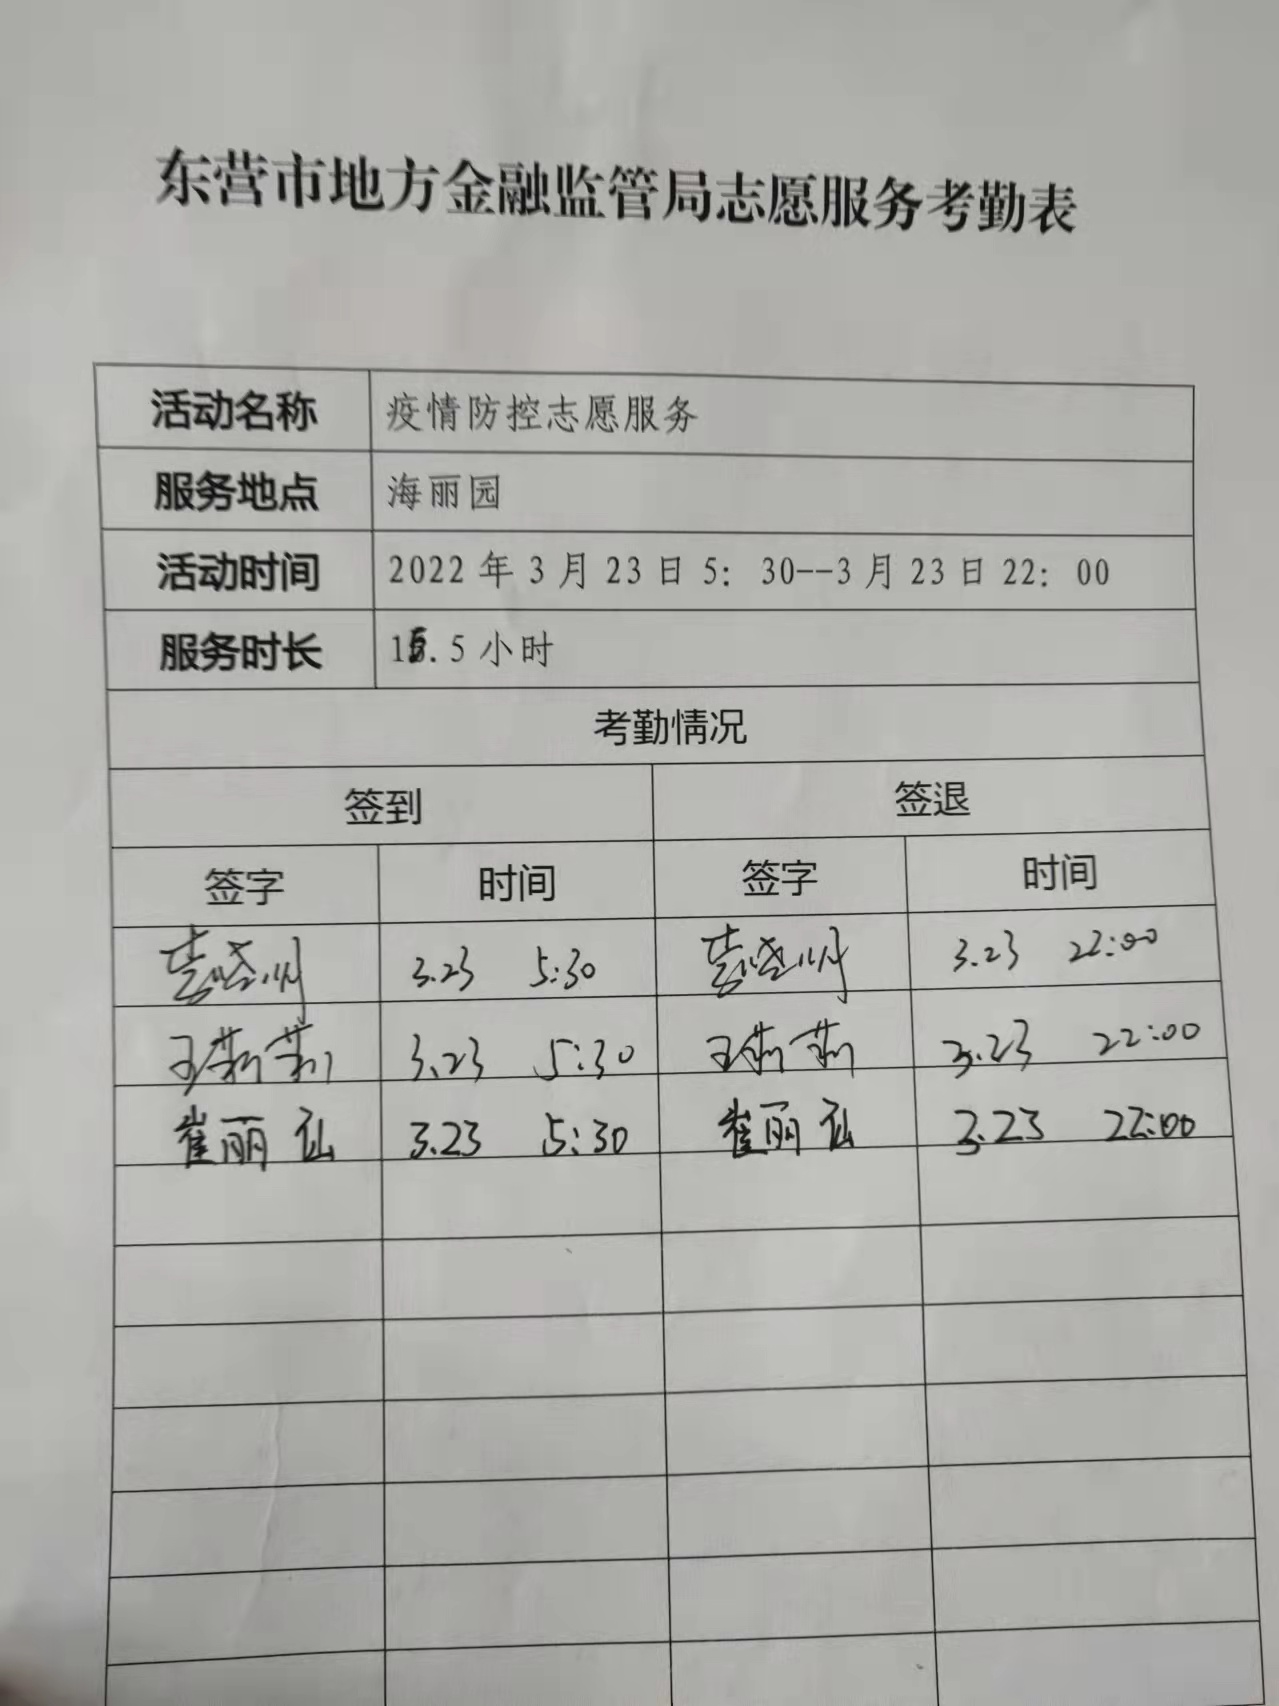 东营市地方金融监管局志愿服务考勤表
活动名称 疫情防控志愿服务
服务地点 海丽园
活动时间 2022年3月23日5：30--3月23日22：00
服务时长 16.5小时
考勤情况
签到 签退
签字 时间 签字 时间
3.23 5:30 3.23 22:00
王莉莉 3.23 5:30 王莉莉 3.23 22:00
崔丽仙 3.23 5:30 崔丽仙 3.23 22:00